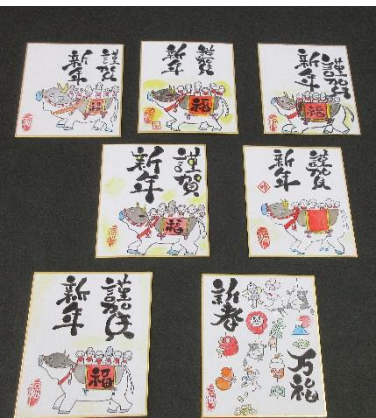 謹賀
新年
福
謹賀
新年
福
謹賀
新年
福
謹賀
新年
福
謹賀
新年
謹賀
新年
福
新春
万福